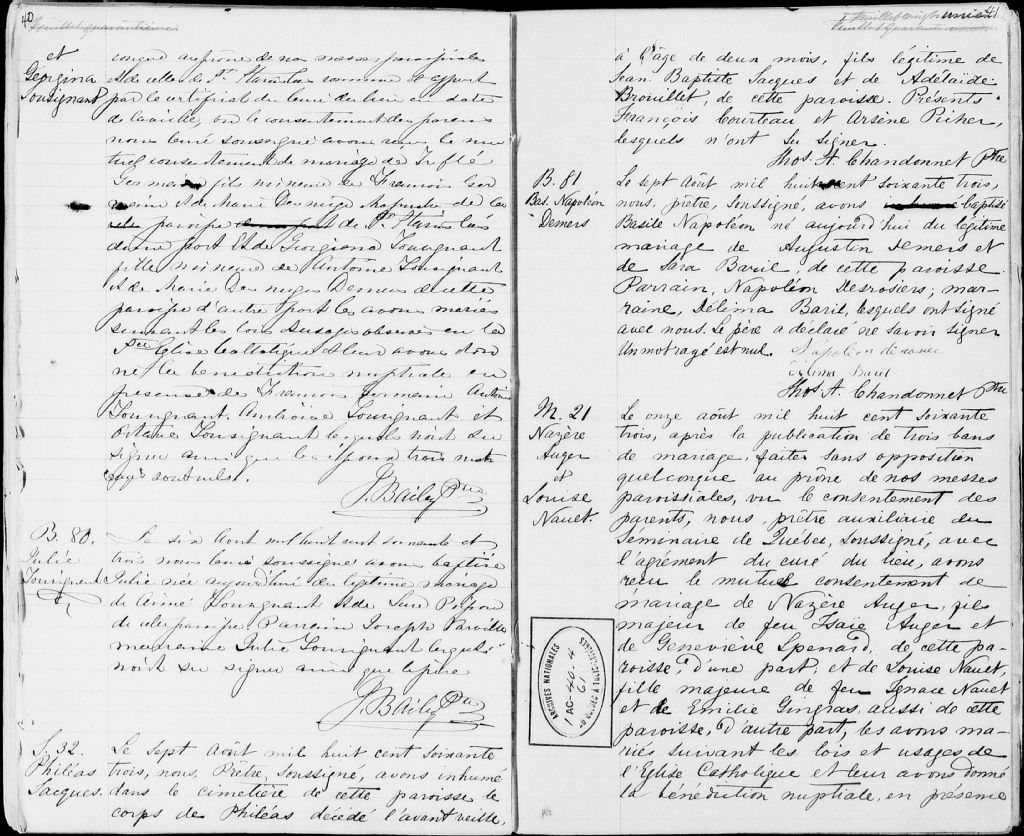 40
Feuillet quarantième
et
Georgina
Tousignant
congué au prône de nos messes paroissiales
et de celles de St. Stanislas comme il appert
par le certificat du curé du lieu en date
de la veille, vu le consentement des parens
nous curé soussigné avons reçu le mu
tuel consentement de mariage de Trefflé
Germain fils mineur de François Ger
main et de Marie Des neiges de la
paroisse de St. Stanislas
d'une part et de Georgiana Tousignant
fille mineure de Antoine Tousignant
et de Marie Des neiges Demers de cette
paroisse d'autre part les avons mariés
suivant les lois et usages observés en la
Ste. Eglise Catholique et leur avons don
né la bénédiction nuptiale en
présence de François Germain Antoine
Tousignant, Ambroise Tousignant et
Octave Tousignant lesquels n'ont su
signer ainsi que les époux trois mots
rayés sont nuls.
J. Bailey Ptre
B. 80.
Julie
Tousignant
Le six Aout mil huit cent soixante et
trois nous curé soussigné avons baptisé
Julie née aujourd'hui du légitime mariage
de Aimé Tousignant et de
de cette paroisse. Parrain Joseph
marraine Julie Tousignant lesquels
n'ont su signer ainsi que le père
J. Bailey Ptre
S. 32.
Philéas
Jacques.
Le sept Août mil huit cent soixante
trois, nous, Prêtre, soussigné, avons inhumé
dans le cimetière de cette paroisse le
corps de Philéas décédé l'avant veille,
41
à l'âge de deux mois, fils légitime de
Jean Baptiste Jacques et de Adélaïde
Brouillet, de cette paroisse. Présents
François Courteau et Arsène Richer,
lesquels n'ont su signer.
Thos. A. Chandonnet Ptre
B. 81
Bas. Napoléon
Demers
Le sept Août mil huit cent soixante trois,
nous, prêtre, soussigné, avons baptisé
Basile Napoléon né aujourd'hui du légitime
mariage de Augustin Demers et
de Sara Baril, de cette paroisse.
Parrain, Napoléon Desrosiers; mar-
raine, Délima Baril, lesquels ont signé
avec nous. Le père a déclaré ne savoir signer
Un mot rayé est nul.
Napoléon
Délima Baril
Thos. A. Chandonnet Ptre
M. 21
Nazère
Auger
et
Louise
Nauet.
Le onze août mil huit cent soixante
trois, après la publication de trois bans
de mariage, faites sans opposition
quelconque au prône de nos messes
paroissiales, vu le consentement des
parents, nous, prêtre auxiliaire du
Séminaire de Québec, soussigné, avec
l'agrément du curé du lieu, avons
reçu le mutuel consentement de
mariage de Nazère Auger, fils
majeur de feu Isaïe Auger et
de Geneviève Spenard, de cette pa-
roisse, d'une part; et de Louise Nauet,
fille majeure de feu Ignace Nauet
et de Emilie Gingras, aussi de cette
paroisse, d'autre part, les avons ma-
riés suivant les lois et usages de
l'Eglise Catholique et leur avons donné
la bénédiction nuptiale, en présence
ARCHIVES NATIONALES
1 AC-40-4
61
DU QUÉBEC À TROIS-RIVIÈRES